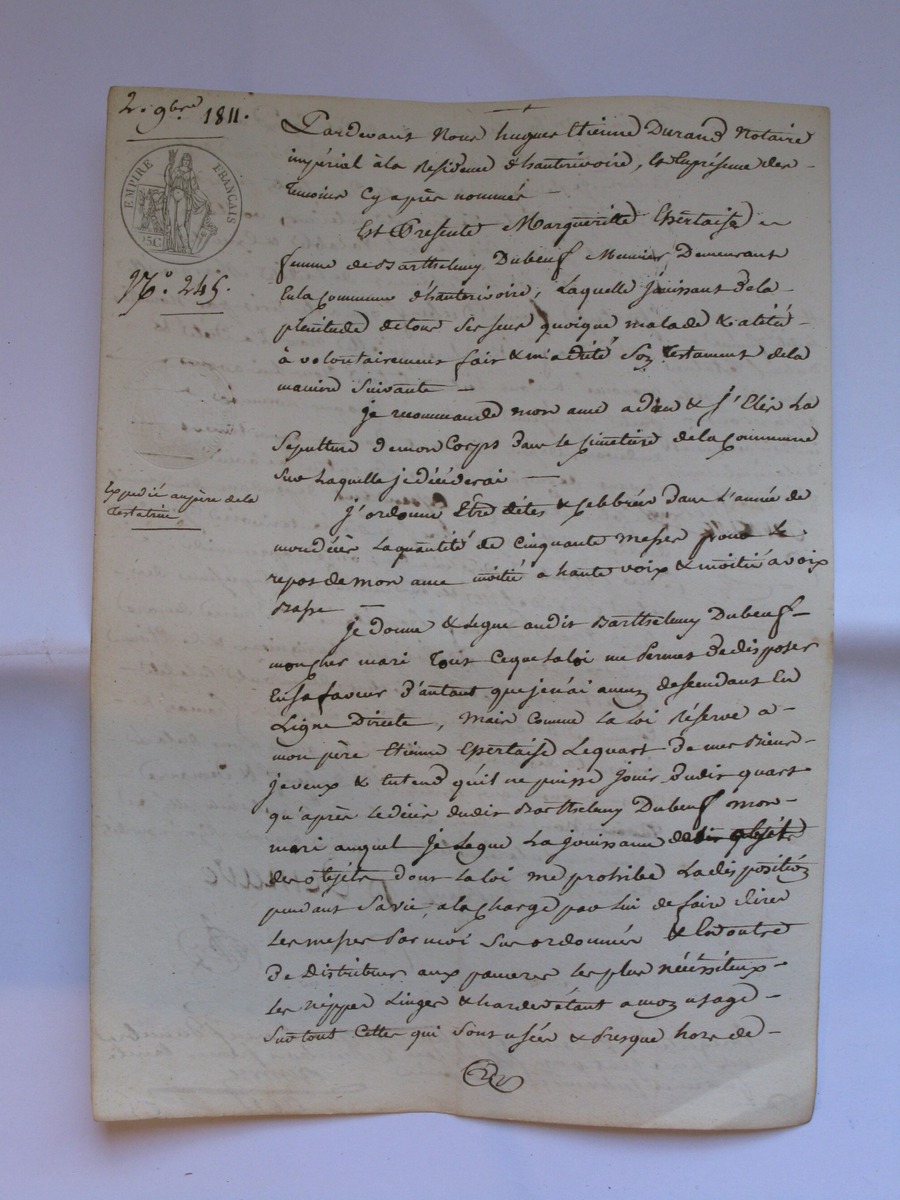 2. 9bre 1811.
EMPIRE FRANÇAIS
25C
N.° 245.
Expedié au père de la
testatrice
Pardevant Nous hugues Etienne Durand Notaire
impérial à la Residence d'hauterivoire, En présence des
temoins Cy après nommés
Est Presente Margueritte Epertaise
femme de Barthelemy Dubeuf Meunier Demeurant
En la Commune d'hauterivoire, Laquelle Jouissant de la
plenitude de tous Ses Sens quoique malade & alitée
à volontairement fait & m'a dicté Son Testament de la
maniere Suivante
je recommande mon ame a dieu & j'Elis La
Sepulture de mon Corps dans le cimetiere de la Commune
Sur Laquelle je décéderai
J'ordonne Etre dites & celebrées dans L'année de
mon décès La quantité de Cinquante messes pour le
repos de mon ame moitié a haute voix & moitié a voix
Basse
je donne & Legue audit Barthelemy Dubeuf
mon cher mari Tout Ce que La loi me Permet de disposer
En Sa faveur d'autant que je n'ai aucun descendant En
Ligne Directe, Mais Comme La Loi Réserve a
mon père Etienne Epertaise Le quart de mes Biens
je veux & Entend qu'il ne puisse Jouir dudit quart
qu'après Le décès dudit Barthelemy Dubeuf mon
mari auquel Je Legue La jouissance
des objets dont La loi me prohibe La disposition
pendant Sa vie, a la Charge par Lui de faire dire
Les messes Par moi Sus ordonnées & En outre
de distribuer aux pauvres les plus nécessiteux
Les nippes Linges & hardes étant a mon usage
Surtout Celles qui Sont usées & Presque hors de